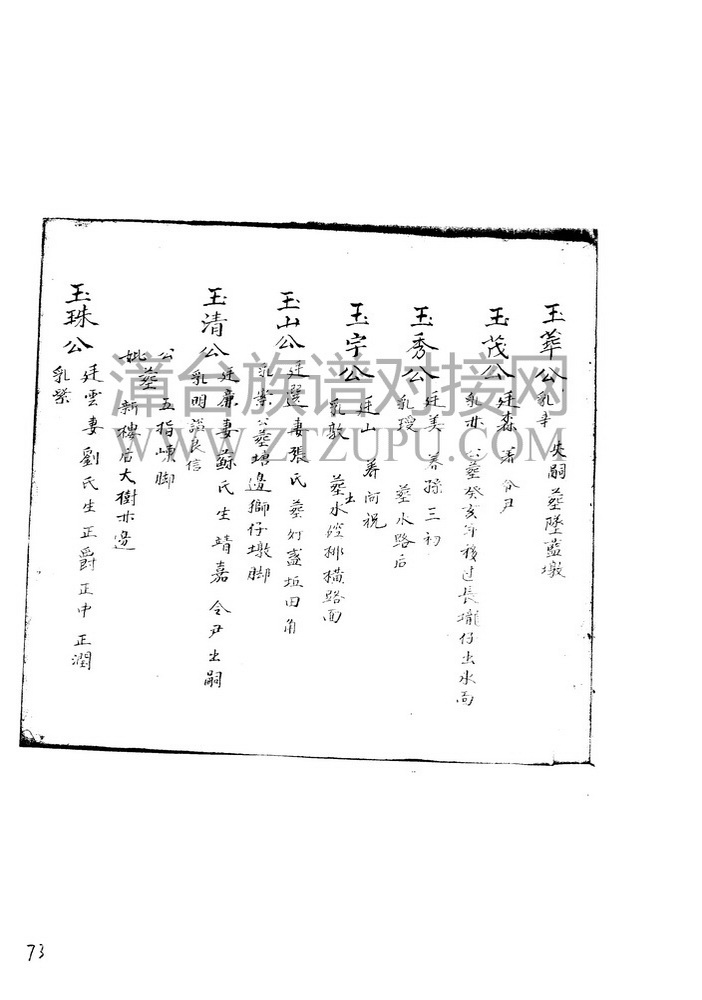 玉華公 乳幸 失嗣 葬墜藍墩
玉茂公 廷森 養令尹
乳亦 公葬癸亥年移过長壠仔出水面
玉秀公 廷美 养孫三初
乳授 葬水路后
玉宇公 廷山 养阿祝
乳敦 葬水 排橫路面
玉山公 廷選 妻張氏 葬灯盞垣田角
乳崇 公葬塘邊獅仔墩脚
玉清公 廷廉 妻蘇氏 生靖嘉 令尹出嗣
乳明 諡良信
公 五指嵊脚
妣葬 新樓后大樹亦邊
玉珠公 廷雲 妻劉氏 生正爵 正中 正潤
乳榮
漳台族谱对接网
WWW.ZTZUPU.COM
73